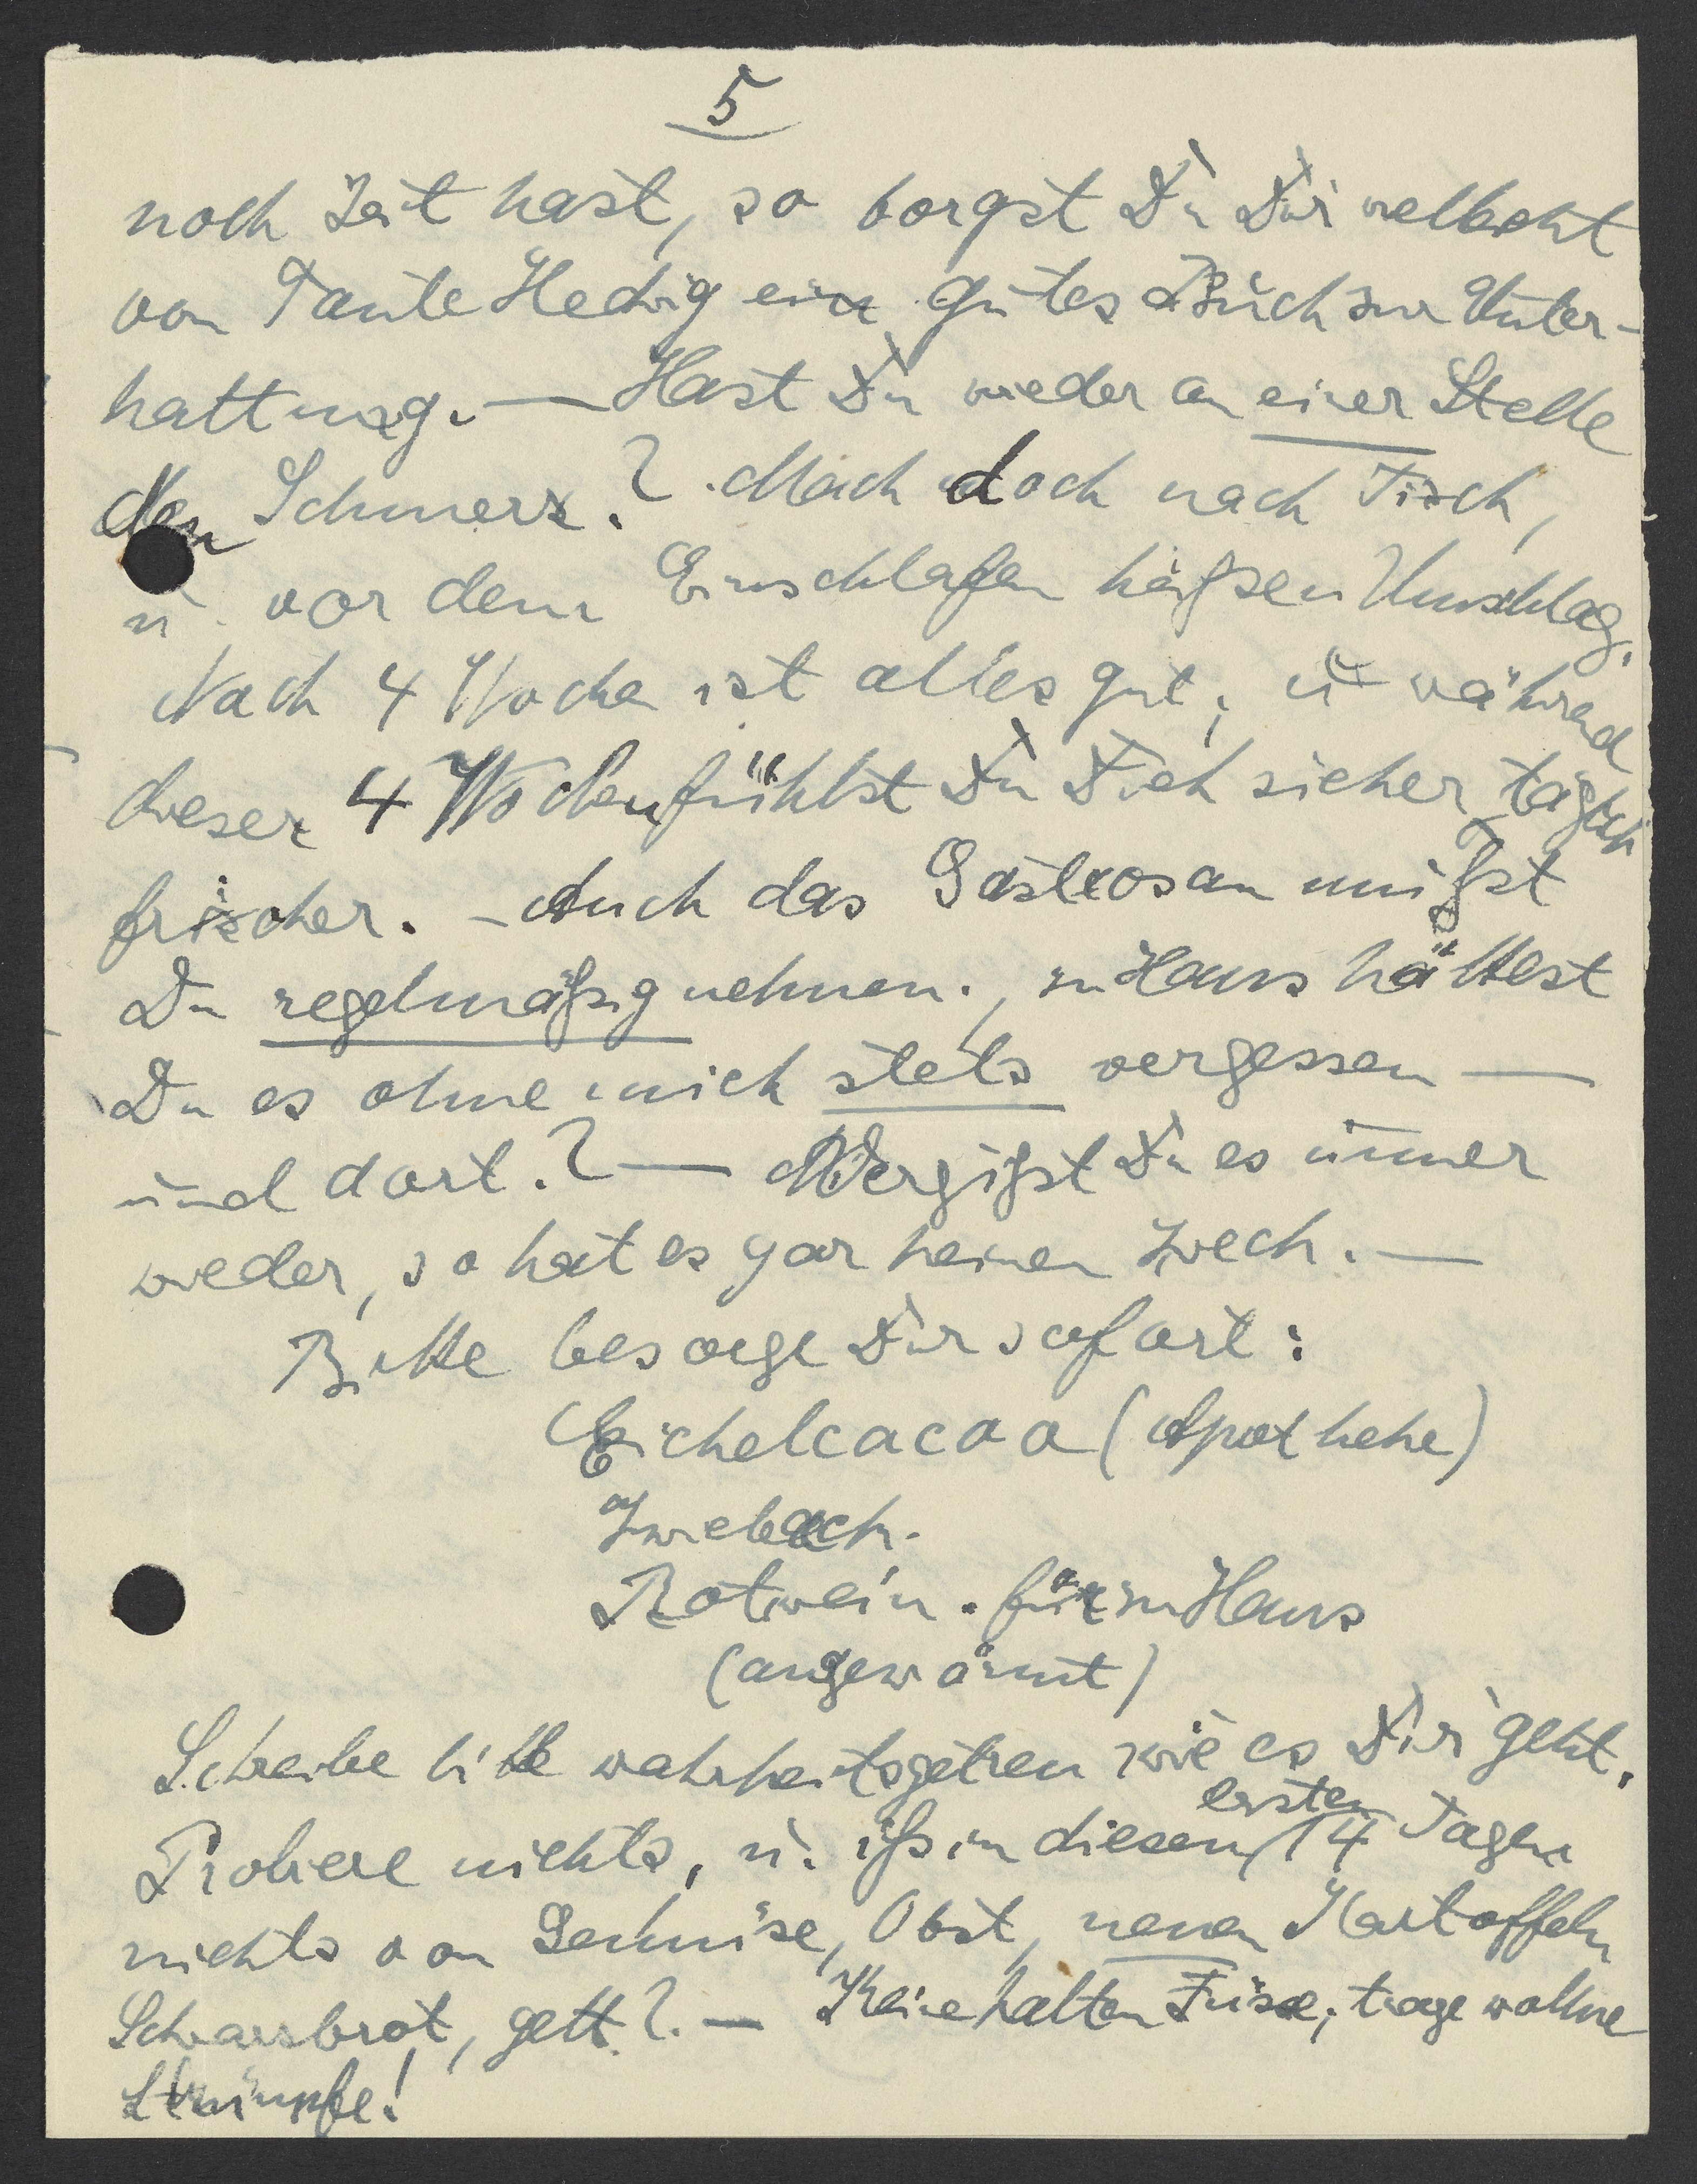 5
noch Zeit hast, so borgst Du Dir vielleicht
von Tante Hedwig ein gutes Buch zur Unter-
haltung. — Hast Du wieder an einer Stelle
den Schmerz.? Mach doch nach Tisch,
u. vor dem Einschlafen heißen Umschlag.
Nach 4 Wochen ist alles gut, u. während
dieser 4 Wochen fühlst Du Dich sicher täglich
frischer. – Auch das Gastrosan mußt
Du regelmäßig nehmen., zu Haus hättest
Du es ohne mich stets vergessen —
und dort.? — Vergißt Du es immer
wieder, so hat es gar keinen Zweck. —
Bitte besorge Dir sofort:
Eichelcacao (Apotheke)
Zwieback.
Rotwein. für zu Haus
(angewärmt)
Schreibe bitte wahrheitsgetreu wie es Dir geht.
Probiere nichts, u. iß in diesen ersten 14 Tagen
nichts von Gemüse, Obst, neuen Kartoffeln
Schwarzbrot, gelt?. — Keine kalten Füße; trage wollne
Strümpfe!